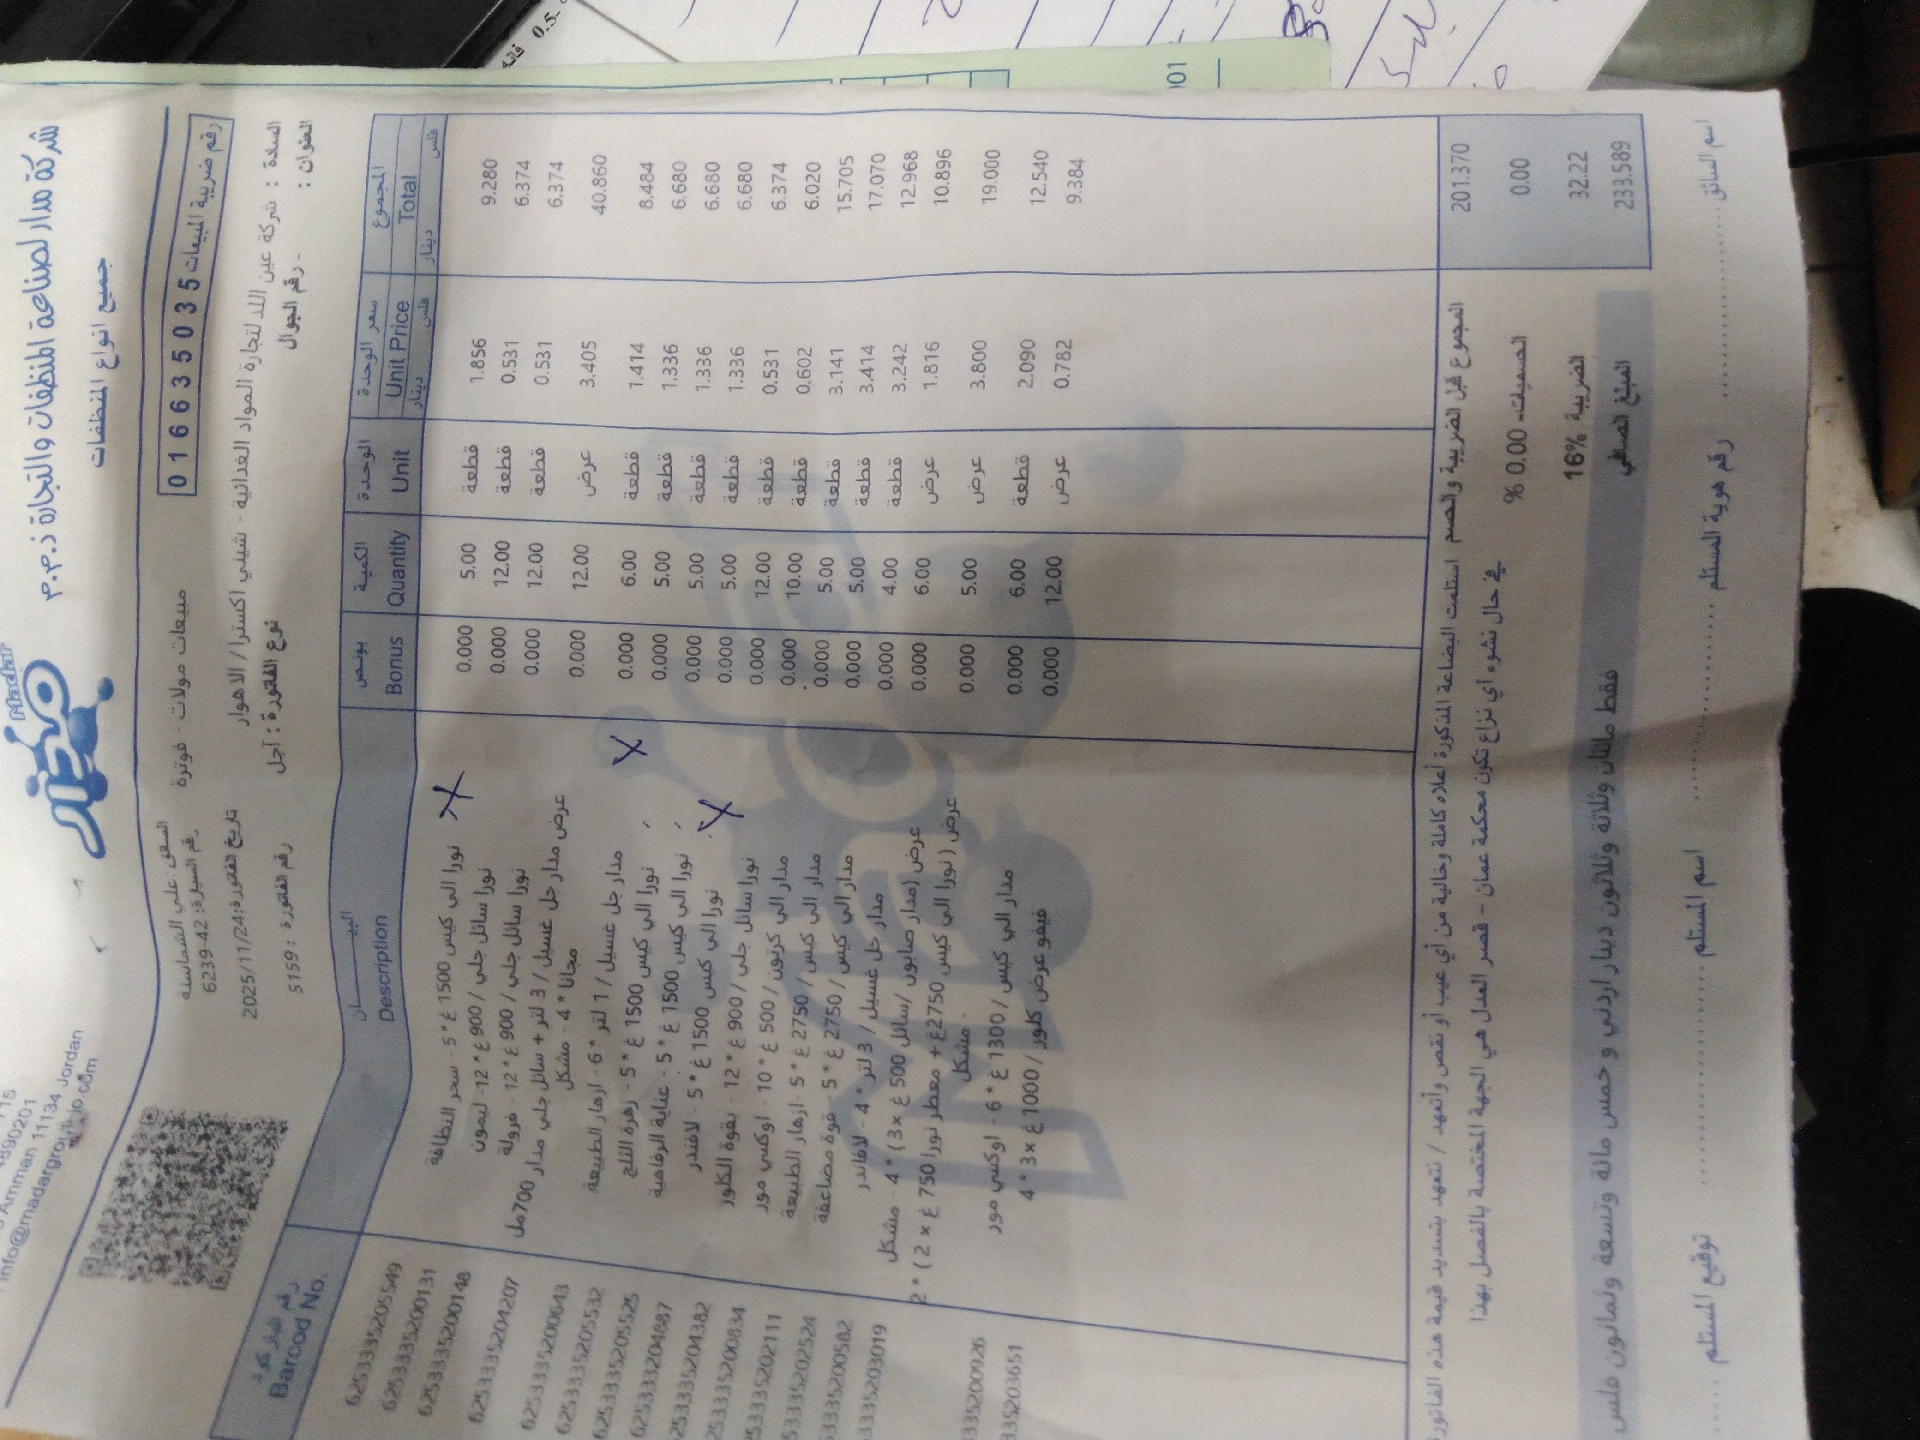 شركة مدار لصناعة المنظفات والتجارة ذ.م.م
جميع انواع المنظفات
مدار
4890201
Amman 11134 Jordan
info@madargroup
رقم ضريبة المبيعات 016635035
مبيعات مولات - فوترة
علي الشماسنة
رقم السيارة: 42-6239
السادة : شركة عين اللد لتجارة المواد الغذائية - شيلي اكسترا / الاهوار
تاريخ الفاتورة: 2025/11/24
العنوان : - رقم الجوال
نوع الفاتورة : آجل
رقم الفاتورة : 5159
رقم الباركود البيـــــان بونص الكمية الوحدة سعر الوحدة المجموع
Barcod No. Description Bonus Quantity Unit Unit Price Total
دينار فلس دينار فلس
6253335205549 نورا الي كيس 1500 غ * 5 - سحر النظافة 0.000 5.00 قطعة 1.856 9.280
6253335200131 نورا سائل جلي / 900 غ * 12 - ليمون 0.000 12.00 قطعة 0.531 6.374
6253335200148 نورا سائل جلي / 900 غ * 12 - فرولة 0.000 12.00 قطعة 0.531 6.374
6253335204207 عرض مدار جل غسيل / 3 لتر + سائل جلي مدار 700مل مجانا * 4 - مشكل 0.000 12.00 عرض 3.405 40.860
6253335200643 مدار جل غسيل / 1 لتر * 6 - ازهار الطبيعة 0.000 6.00 قطعة 1.414 8.484
6253335205532 نورا الي كيس 1500 غ * 5 - زهرة الثلج 0.000 5.00 قطعة 1.336 6.680
6253335205525 نورا الي كيس 1500 غ * 5 - عناية الرفاهية 0.000 5.00 قطعة 1.336 6.680
6253335204887 نورا الي كيس 1500 غ * 5 - لافندر 0.000 5.00 قطعة 1.336 6.680
253335204382 نورا سائل جلي / 900 غ * 12 - بقوة الكلور 0.000 12.00 قطعة 0.531 6.374
253335200834 مدار الي كرتون / 500 غ * 10 - اوكسي مور 0.000 10.00 قطعة 0.602 6.020
53335202111 مدار الي كيس / 2750 غ * 5 - ازهار الطبيعة 0.000 5.00 قطعة 3.141 15.705
53335202524 مدار الي كيس / 2750 غ * 5 - قوة مضاعفة 0.000 5.00 قطعة 3.414 17.070
3335200582 مدار جل غسيل / 3 لتر * 4 - لافاندر 0.000 4.00 قطعة 3.242 12.968
3335203019 عرض (مدار صابون /سائل 500 غ x3) * 4 - مشكل 0.000 6.00 عرض 1.816 10.896
عرض (نورا الي كيس 2750غ + معطر نورا 750 غ x 2 ) * 2 - مشكل 0.000 5.00 عرض 3.800 19.000
335200926 مدار الي كيس / 1300 غ * 6 - اوكسي مور 0.000 6.00 قطعة 2.090 12.540
335203651 فيفو عرض كلور / 1000 غ x3 * 4 0.000 12.00 عرض 0.782 9.384
المجموع قبل الضريبة والخصم 201.370
استلمت البضاعة المذكورة أعلاه كاملة وخالية من أي عيب أو نقص وأتعهد / نتعهد بتسديد قيمة هذه الفاتورة
في حال نشوء أي نزاع تكون محكمة عمان - قصر العدل هي الجهة المختصة بالفصل بهذا
0.00 % 0.00
الضريبة 16% 32.22
المبلغ الصافي 233.589
فقط مائتان وثلاثة وثلاثون دينار اردني و خمس مائة وتسعة وثمانون فلس
توقيع المستلم .......... اسم المستلم .......... رقم هوية المستلم .......... اسم السائق ..........